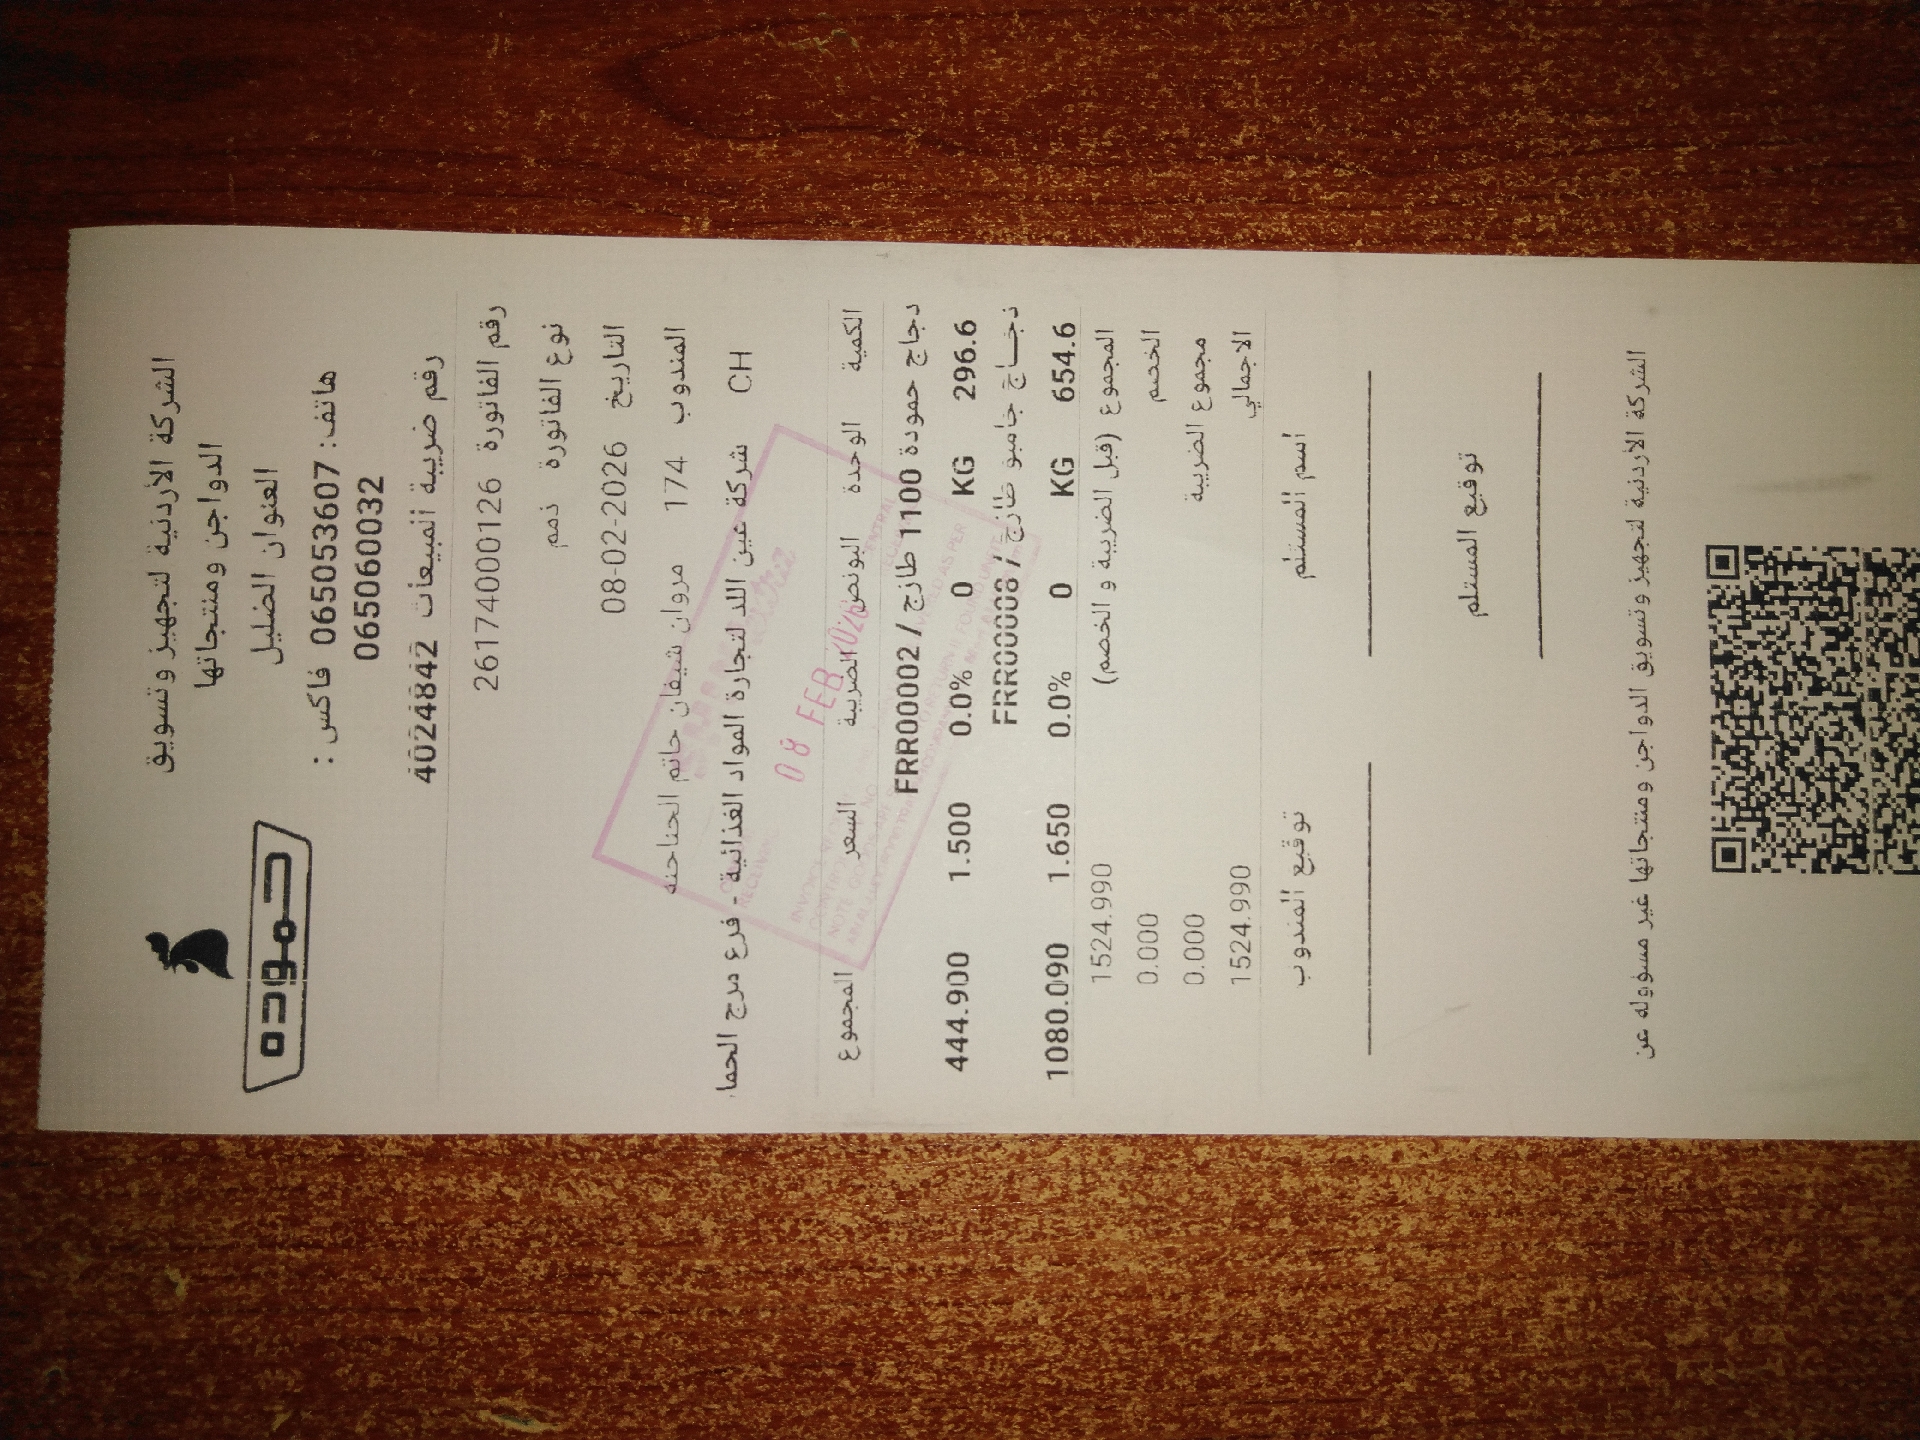 حموده
الشركة الأردنية لتجهيز وتسويق
الدواجن ومنتجاتها
العنوان الضليل
هاتف: 065053607 فاكس :
065060032
رقم ضريبة المبيعات 4024842
رقم الفاتورة 26174000126
نوع الفاتورة ذمم
التاريخ 08-02-2026
المندوب 174 مروان شيفان حاتم الحناحنه
CH شركة عين اللد لتجارة المواد الغذائية - فرع مرج الحما
الكمية الوحدة البونص الضريبة السعر المجموع
دجاج حمودة 1100 طازج / FRR00002
296.6 KG 0 0.0% 1.500 444.900
دجاج جامبو طازج / FRR00008
654.6 KG 0 0.0% 1.650 1080.090
المجموع (قبل الضريبة و الخصم) 1524.990
الخصم 0.000
مجموع الضريبة 0.000
الاجمالي 1524.990
اسم المستلم توقيع المندوب
توقيع المستلم
الشركة الاردنية لتجهيز وتسويق الدواجن ومنتجاتها غير مسؤوله عن
08 FEB 2026